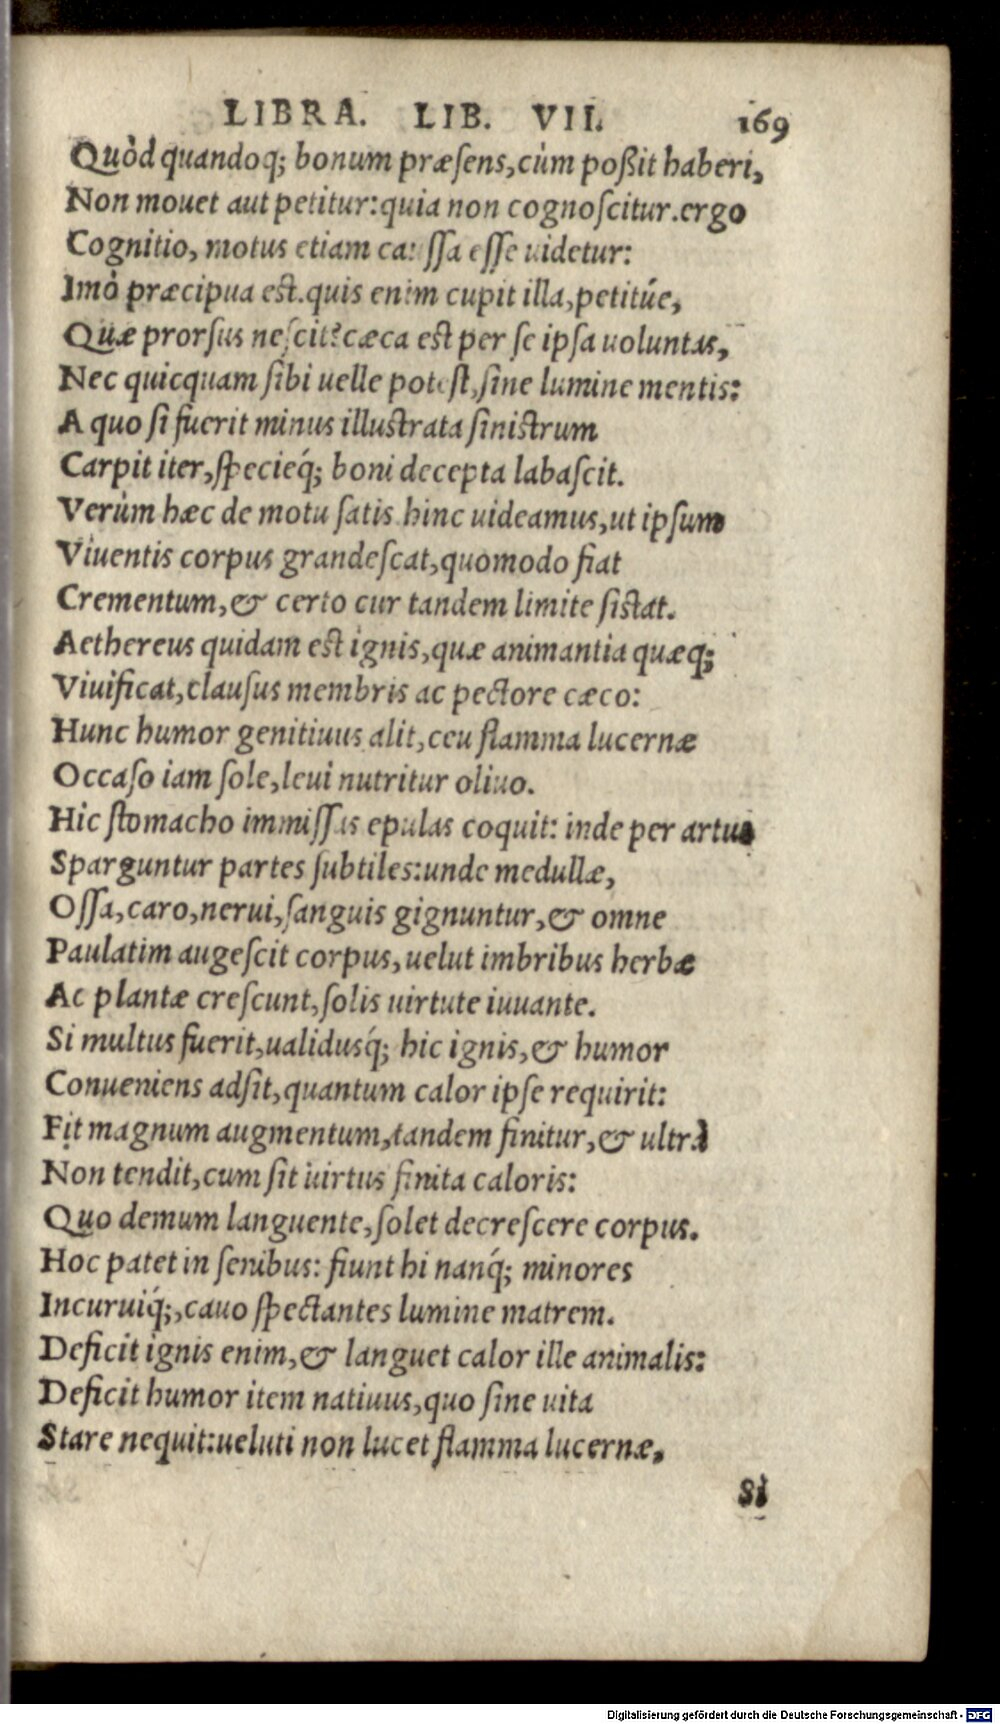 LIBRA. LIB. VII. 169
Quòd quandoq; bonum præsens, cùm poßit haberi,
Non mouet aut petitur: quia non cognoscitur. ergo
Cognitio, motus etiam caussa esse uidetur:
Imò præcipua est. quis enim cupit illa, petitúe,
Quæ prorsus nescit? cæca est per se ipsa uoluntas,
Nec quicquam sibi uelle potest, sine lumine mentis:
A quo si fuerit minus illustrata sinistrum
Carpit iter, specieq́; boni decepta labascit.
Verùm hæc de motu satis. hinc uideamus, ut ipsum
Viuentis corpus grandescat, quomodo fiat
Crementum, & certo cur tandem limite sistat.
Aethereus quidam est ignis, quæ animantia quæq;
Viuificat, clausus membris ac pectore cæco:
Hunc humor genitiuus alit, ceu flamma lucernæ
Occaso iam sole, leui nutritur oliuo.
Hic stomacho immissas epulas coquit: inde per artus
Sparguntur partes subtiles: unde medullæ,
Ossa, caro, nerui, sanguis gignuntur, & omne
Paulatim augescit corpus, uelut imbribus herbæ
Ac plantæ crescunt, solis uirtute iuuante.
Si multus fuerit, ualidusq́; hic ignis, & humor
Conueniens adsit, quantum calor ipse requirit:
Fit magnum augmentum, tandem finitur, & ultrà
Non tendit, cum sit uirtus finita caloris:
Quo demum languente, solet decrescere corpus.
Hoc patet in senibus: fiunt hi nanq́; minores
Incuruiq́;, cauo spectantes lumine matrem.
Deficit ignis enim, & languet calor ille animalis:
Deficit humor item natiuus, quo sine uita
Stare nequit: ueluti non lucet flamma lucernæ,
Si
Digitalisierung gefördert durch die Deutsche Forschungsgemeinschaft - DFG